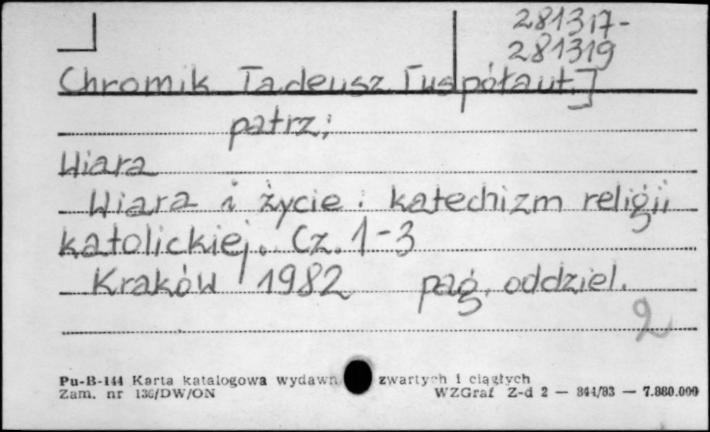 281317-
281319
Chromik Tadeusz [współaut.]
patrz:
Wiara
Wiara i życie : katechizm religii
katolickiej. Cz. 1-3
Kraków 1982 pag. oddziel.
2
Pu-B-144 Karta katalogowa wydawn zwartych i ciągłych
Zam. nr 136/DW/ON WZGraf Z-d 2 — 344/83 — 7.880.000